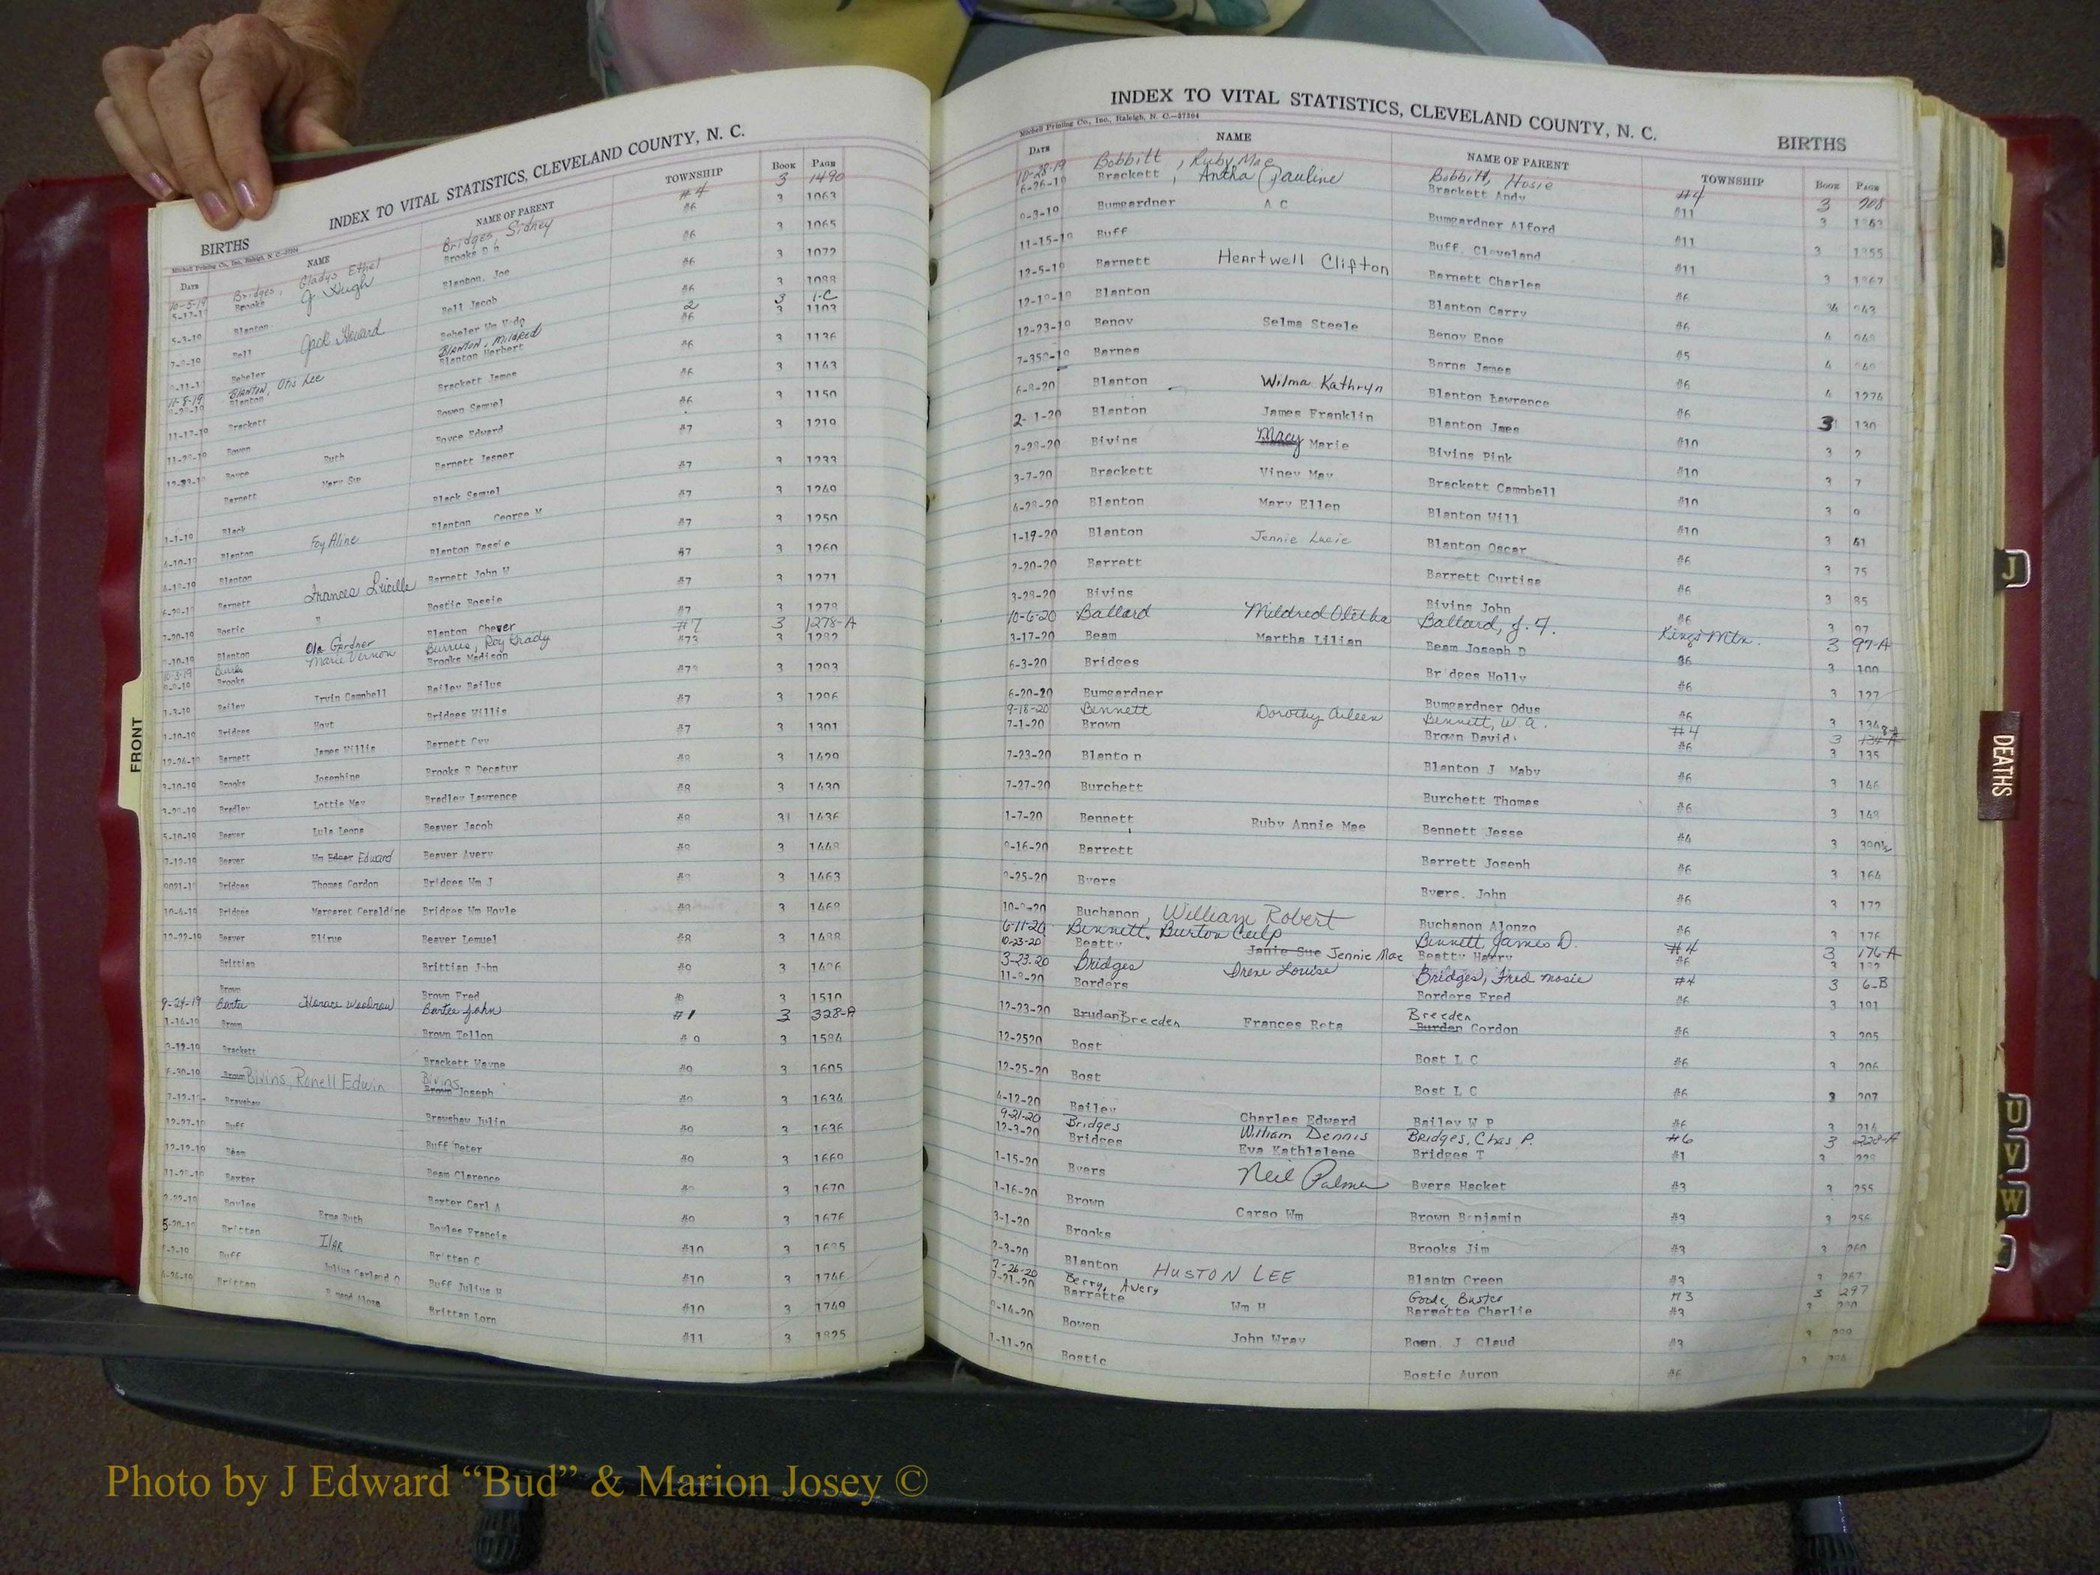 INDEX TO VITAL STATISTICS, CLEVELAND COUNTY, N. C.
BIRTHS
DATE NAME NAME OF PARENT TOWNSHIP BOOK PAGE
10-5-19 Bridges, Gladys Ethel Bridges Sidney #4 3 1490
Brooks J. Hugh Brooks #6 3 1063
5-3-19 Blanton Blanton, Joe #6 3 1065
Bell Jack Howard Bell Jacob #6 3 1072
Bebeler #6 3
10-8-19 Blanton, Otis Lee Blanton, Mildred 2 3 1-C
Blanton Blanton Herbert #6 3 1103
11-17-19 Brackett Brackett James #6 3 1136
Bowen Bowen Samuel #6 3 1143
Boyce Ruth Boyce Edward #6 3 1150
Barnett Mary Sue Barnett Jasper #7 3 1219
1-1-19 Black Black Samuel #7 3 1233
Blanton Foy Aline Blanton George M #7 3 1249
Blanton Blanton #7 3 1250
Barnett Frances Lucille Barnett John W #7 3 1260
Bostic Bostic #7 3 1271
Blanton Ola Gardner Blanton #7 3 1278
10-3-19 Marie Vernon Burrus, Roy Grady #7 3 1278-A
Brooks Brooks Madison 3 1282
Bailey Irvin Campbell Bailey 3 1293
1-10-19 Bridges Hoyt Bridges Willis #7 3 1296
12-24-19 Barnett James Willis Barnett #7 3 1301
3-10-19 Brooks Josephine Brooks R Decatur #8 3 1429
Bradley Lottie May Bradley Lawrence #8 3 1430
5-10-19 Beaver Lula Leona Beaver Jacob #8 3 1436
Beaver Wm Edgar Edward Beaver Avery #8 3 1448
Bridges Thomas Gordon Bridges Wm J 3 1463
10-4-19 Bridges Margaret Geraldine Bridges Wm Hoyle 3 1469
12-22-19 Beaver Beaver Lemuel #8 3 1488
Brittian Brittian John #9 3 1496
Brown Brown Fred 3 1510
9-24-19 Horace Woodrow John #1 3 328-A
1-14-19 Brown Brown #9 3 1584
3-12-19 Brackett Brackett Wayne #9 3 1605
6-30-19 Brown Bivins, Ronell Edwin Bivins Brown Joseph #9 3 1634
Brayshaw #9 3 1636
12-27-19 Buff Buff Peter #9 3 1669
12-12-19 Beam Beam Clarence 3 1670
Baxter Baxter Carl A #9 3 1676
Boyles Erma Ruth Boyles Francis #10 3
5-20-19 Brittan Ilar Brittan C #10 3 1746
Buff Buff Julius H #10 3 1749
Brittan Brittan Lorn #11 3 1825
FRONT
INDEX TO VITAL STATISTICS, CLEVELAND COUNTY, N. C.
Mitchell Printing Co., Inc., Raleigh, N. C.—37304
BIRTHS
DATE NAME NAME OF PARENT TOWNSHIP BOOK PAGE
10-28-19 Bobbitt, Ruby Mae Bobbitt, Hosie #4 3 908
6-26-19 Brackett, Antha Pauline Brackett Andy #11 3
9-3-19 Bumgardner A C Bumgardner Alford #11 3
11-15-19 Buff Buff, Cleveland #11 3
12-5-19 Barnett Heartwell Clifton Barnett Charles #6
Blanton Blanton Carry #6
12-23-19 Benoy Selma Steele Benoy Enos #5 4
Barnes Barns James #6 4
6-8-20 Blanton Wilma Kathryn Blanton Lawrence #6
2-1-20 Blanton James Franklin Blanton Jmes #10 3 130
2-28-20 Bivins Macy Marie Bivins Pink #10 3 2
3-7-20 Brackett Viney May Brackett Campbell #10 3 7
4-28-20 Blanton Mary Ellen Blanton Will #10 3 9
1-19-20 Blanton Jennie Lucie Blanton Oscar #6 3 41
2-20-20 Barrett Barrett Curtiss #6 3 75
3-28-20 Bivins Bivins John #6 3 85
10-6-20 Ballard Mildred Oletha Ballard, J. F. Kings Mtn. 3 97-A
3-17-20 Beam Martha Lilian Beam Joseph D 3 100
6-3-20 Bridges Bridges Holly #6 3 127
6-20-20 Bumgardner Bumgardner Odus #6 3
9-18-20 Bennett Dorothy Aileen Bennett, W. A. #4 3
7-1-20 Brown Brown David #6 3 135
7-23-20 Blanton Blanton J Maby #6 3 146
7-27-20 Burchett Burchett Thomas #6 3 149
1-7-20 Bennett Ruby Annie Mae Bennett Jesse #4 3 390½
9-16-20 Barrett Barrett Joseph #6 3 164
9-25-20 Byers Byers, John #6 3 172
Buchanon, William Robert Buchanon Alonzo #6 3 176
6-11-20 Bennett, Burton Culp Bennett, James D. #4 3 176-A
10-23-20 Beatty Janie Sue Jennie Mae Beatty Harry #6 3
3-23-20 Bridges Irene Louise Bridges, Fred Mosie #4 3 6-B
11-9-20 Borders Borders Fred #6 3 191
12-23-20 Breeden Frances Reta Breeden Burden Gordon #6 3 205
12-2520 Bost Bost L C #6 3 206
12-25-20 Bost Bost L C #6 3 207
4-12-20 Bailey Charles Edward Bailey W P #6 3 214
9-21-20 Bridges William Dennis Bridges, Chas P. #6 3 228-A
12-3-20 Bridges Eva Kathlalene Bridges T #1 3 229
1-15-20 Byers Neil Palmer Byers Hacket #3 3 255
1-16-20 Brown Carso Wm Brown Benjamin #3 3 256
3-1-20 Brooks Brooks Jim #3 3 260
2-3-20 Blanton HUSTON LEE Blanton Green #3 3 267
7-26-20 Berry, Avery Goode, Buster #3 3 297
7-21-20 Barrette Wm H Barnette Charlie #3 3
9-14-20 Bowen John Wray Boen, J Claud #3 3
1-11-20 Bostic Bostic Auron #6 3
J
DEATHS
U
V
W
Photo by J Edward “Bud” & Marion Josey ©